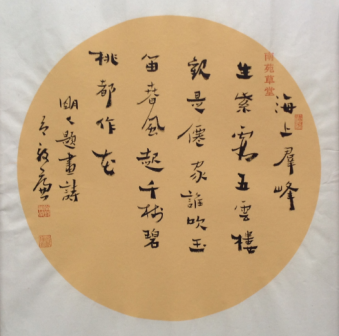 海上羣峰
生紫霞五雲樓
觀是僊家誰吹玉
笛春風起千樹碧
桃都作花
題畫詩